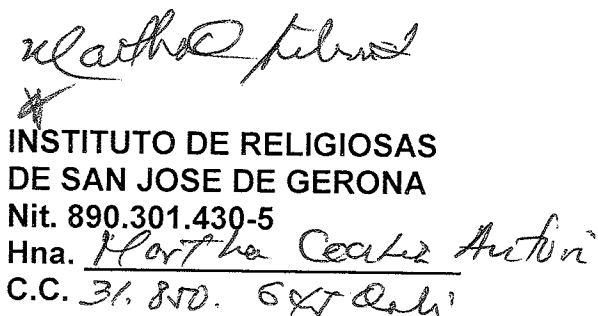 Martha
INSTITUTO DE RELIGIOSAS
DE SAN JOSE DE GERONA
Nit. 890.301.430-5
Hna. Martha Cecilia
C.C. 31.850.